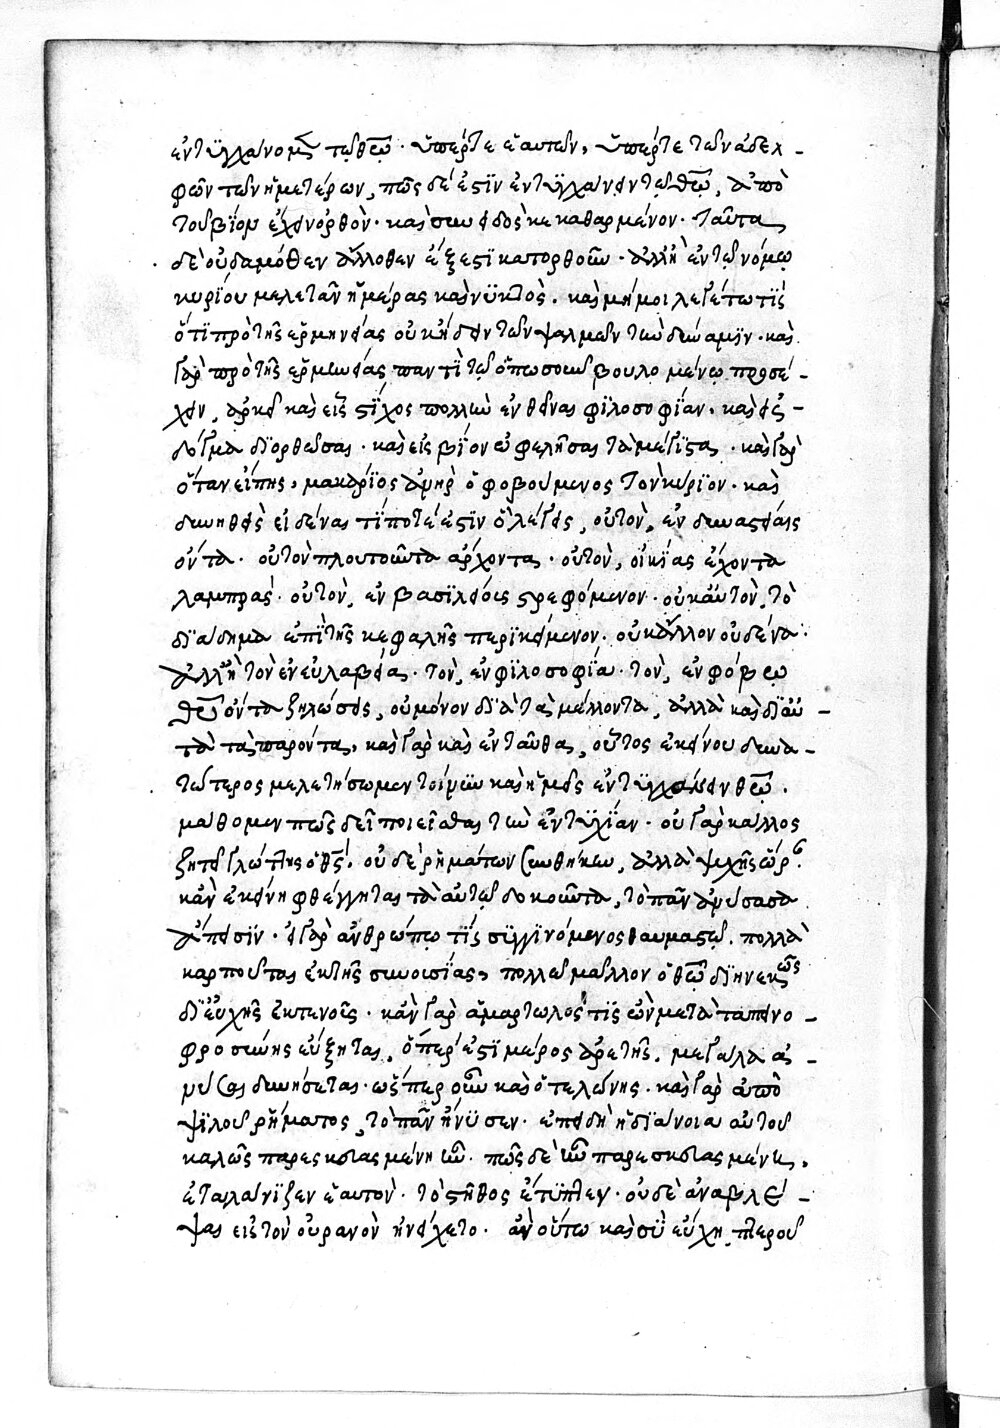 ἐντυγχάνομεν τῷ θεῷ· ὑπέρ τε ἑαυτῶν, ὑπέρ τε τῶν ἀδελ-
φῶν τῶν ἡμετέρων, πῶς δέ ἐστιν ἐντυγχάνειν τῷ θεῷ, ἀπὸ
τοῦ βίου ἔχειν ὀρθὸν· καὶ συνειδὸς κεκαθαρμένον· ταῦτα
δὲ οὐδαμόθεν ἄλλοθεν ἔξεστι κατορθοῦν· ἀλλ' ἢ ἐν τῷ νόμῳ
κυρίου μελετᾶν ἡμέρας καὶ νυκτὸς. καὶ μή μοι λεγέτω τίς
ὅτι πρὸ τῆς ἑρμηνείας οὐκ ἤδειν τῶν ψαλμῶν τὴν δύναμιν· καὶ
γὰρ πρὸ τῆς ἑρμηνείας παντὶ τῷ ὁπωσοῦν βουλομένῳ προσέ-
χειν, ἀρκεῖ καὶ εἷς στίχος πολλὴν ἐνθεῖναι φιλοσοφίαν, καὶ
δόγμα διορθῶσαι· καὶ εἰς βίον ὠφελῆσαι τὰ μέγιστα· καὶ γὰρ
ὅταν εἴπῃς, μακάριος ἀνὴρ ὁ φοβούμενος τὸν κύριον· καὶ
δυνηθεὶς εἰδέναι τί ποτέ ἐστιν ὃ λέγεις, οὐ τὸν, ἐν δυναστείαις
ὄντα· οὐ τὸν πλουτοῦντα ἄρχοντα· οὐ τὸν, οἰκίας ἔχοντα
λαμπρὰς· οὐ τὸν, ἐν βασιλείοις στρεφόμενον· οὐκ αὐτὸν, τὸ
διάδημα ἐπὶ τῆς κεφαλῆς περικείμενον· οὐκ ἄλλον οὐδένα·
ἀλλ' ἢ τὸν ἐν εὐλαβείᾳ· τὸν, ἐν φιλοσοφίᾳ· τὸν, ἐν φόβῳ
θεοῦ ὄντα ζηλώσεις, οὐ μόνον διὰ τὰ μέλλοντα, ἀλλὰ καὶ δι' αὐ-
τὰ τὰ παρόντα, καὶ γὰρ καὶ ἐνταῦθα, οὗτος ἐκείνου δυνα-
τώτερος μελετήσωμεν τοίνυν καὶ ἡμεῖς ἐντυγχάνειν θεῷ.
μάθομεν πῶς δεῖ ποιεῖσθαι τὴν ἐντυχίαν· οὐ γὰρ κάλλος
ζητεῖ γλώττης ὁ θεὸς, οὐδὲ ῥημάτων συνθήκην, ἀλλὰ ψυχῆς ὥραν·
κἂν ἐκείνη φθέγγηται τὰ αὐτῷ δοκοῦντα, τὸ πᾶν ἀνύσασα
ἄπεισιν· εἰ γὰρ ἀνθρώπῳ τίς συγγινόμενος θαυμαστῷ, πολλὰ
καρποῦται ἐκ τῆς συνουσίας, πολλῷ μᾶλλον ὁ θεῷ διηνεκῶς
δι' εὐχῆς ἐκτενοῦς· κἂν γὰρ ἁμαρτωλός τις ὢν μετὰ ταπεινο-
φροσύνης εὔξηται, ὅπέρ ἐστι μέρος ἀρετῆς, μεγάλα ἀ-
νύσαι δυνήσεται· ὥσπερ οὖν καὶ ὁ τελώνης. καὶ γὰρ ἀπὸ
ψιλοῦ ῥήματος, τὸ πᾶν ἤνυσεν· ἐπειδὴ ἡ διάνοια αὐτοῦ
καλῶς παρεσκευασμένη ἦν· πῶς δὲ ἦν παρεσκευασμένη,
ἐταλάνιζεν ἑαυτὸν· τὸ στῆθος ἔτυπτεν· οὐδὲ ἀναβλέ-
ψαι εἰς τὸν οὐρανὸν ἠνείχετο· ἂν οὕτω καὶ σὺ εὔχῃ, πτεροῦ